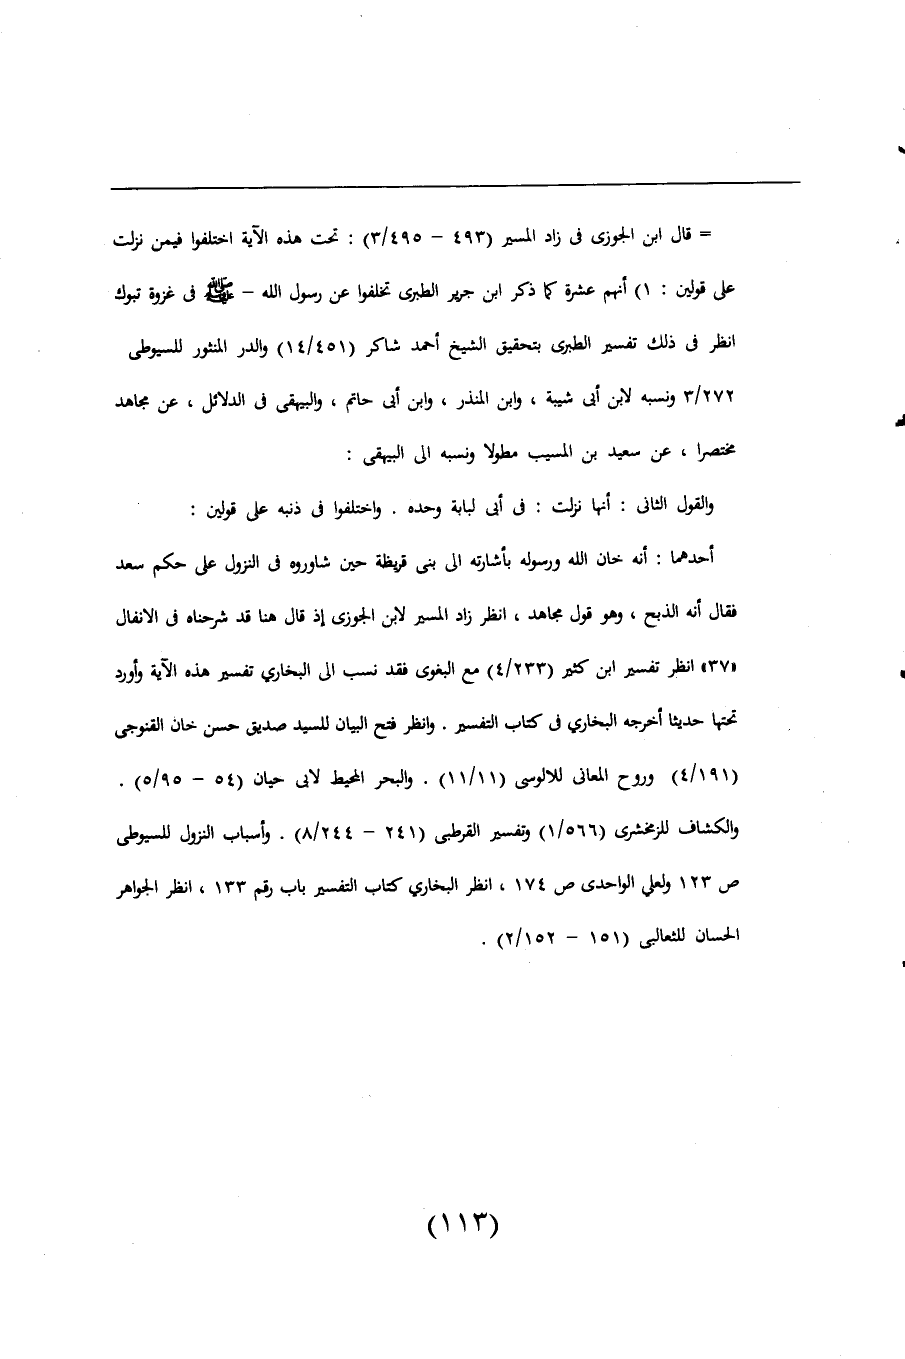 = قال ابن الجوزى فى زاد المسير (٤٩٣ – ٣/٤٩٥) : تحت هذه الآية اختلفوا فيمن نزلت
على قولين : ١) أنهم عشرة كما ذكر ابن جرير الطبرى تخلفوا عن رسول الله – ﷺ فى غزوة تبوك
انظر فى ذلك تفسير الطبرى بتحقيق الشيخ أحمد شاكر (١٤/٤٥١) والدر المنثور للسيوطى
٣/٢٧٢ ونسبه لابن أبى شيبة ، وابن المنذر ، وابن أبى حاتم ، والبيهقى فى الدلائل ، عن مجاهد
مختصرا ، عن سعيد بن المسيب مطولا ونسبه الى البيهقى :
والقول الثانى : أنها نزلت : فى أبى لبابة وحده . واختلفوا فى ذنبه على قولين :
أحدهما : أنه خان الله ورسوله بأشارته الى بنى قريظة حين شاوروه فى النزول على حكم سعد
فقال أنه الذبح ، وهو قول مجاهد ، انظر زاد المسير لابن الجوزى إذ قال هنا قد شرحناه فى الانفال
«٣٧» انظر تفسير ابن كثير (٤/٢٣٣) مع البغوى فقد نسب الى البخاري تفسير هذه الآية وأورد
تحتها حديثا أخرجه البخاري فى كتاب التفسير . وانظر فتح البيان للسيد صديق حسن خان القنوجى
(٤/١٩١) وروح المعانى للالوسى (١١/١١) . والبحر المحيط لابى حيان (٥٤ – ٥/٩٥) .
والكشاف للزمخشرى (١/٥٦٦) وتفسير القرطبى (٢٤١ – ٨/٢٤٤) . وأسباب النزول للسيوطى
ص ١٢٣ ولعلي الواحدى ص ١٧٤ ، انظر البخاري كتاب التفسير باب رقم ١٣٣ ، انظر الجواهر
الحسان للثعالبى (١٥١ – ٢/١٥٢) .
(١١٣)